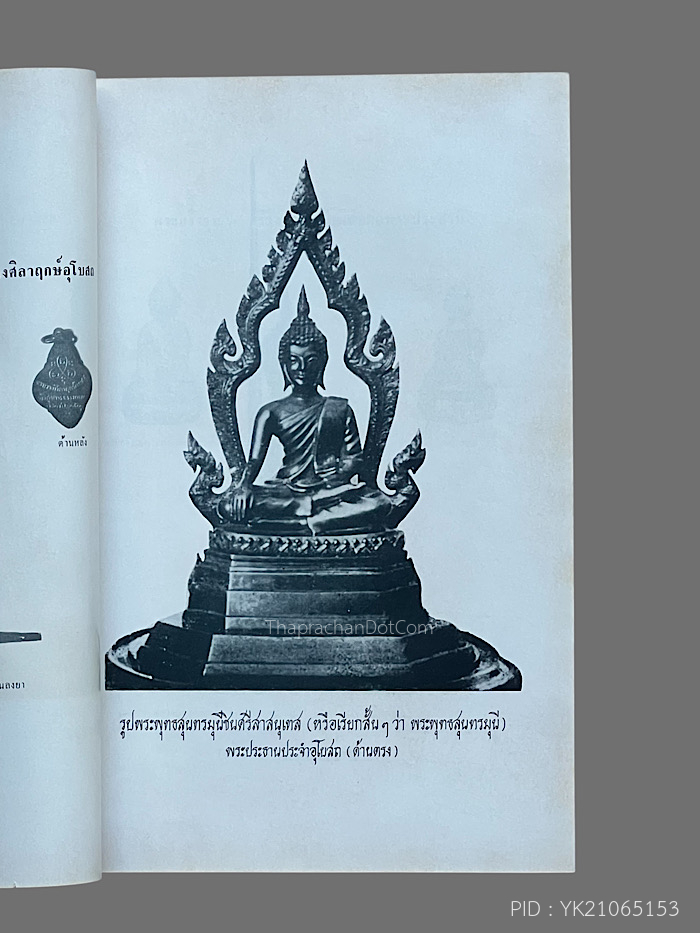 งศิลาฤกษ์อุโบสถ
ด้านหลัง
นลงยา
ThaprachanDotCom
รูปพระพุทธสุนทรมุนีชินศรีสาสนุเทส (หรือเรียกสั้น ๆ ว่า พระพุทธสุนทรมุนี)
พระประธานประจำอุโบสถ (ด้านตรง)
PID : YK21065153